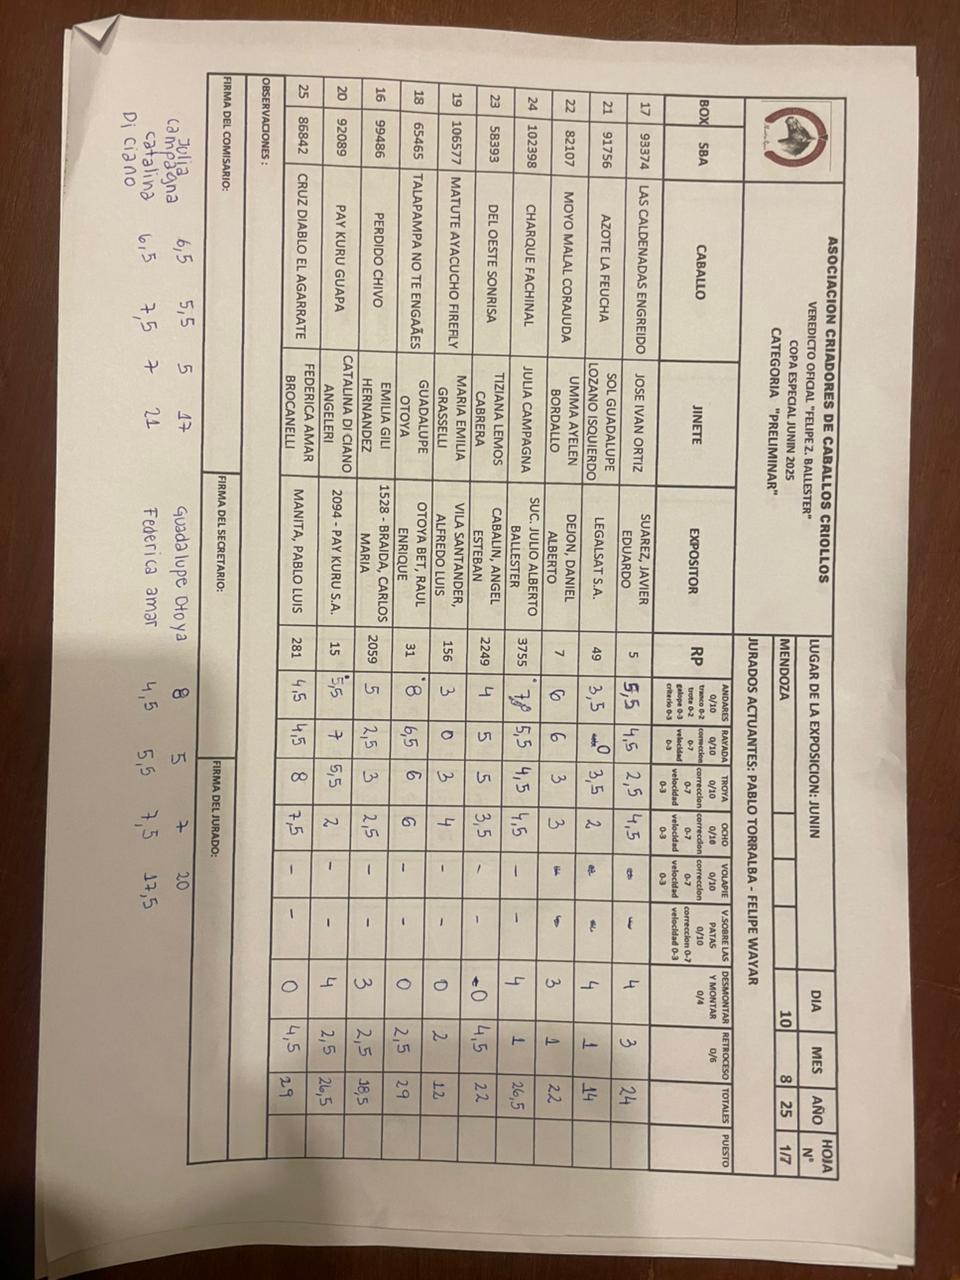 ASOCIACION CRIADORES DE CABALLOS CRIOLLOS
VEREDICTO OFICIAL "FELIPE Z. BALLESTER"
COPA ESPECIAL JUNIN 2025
CATEGORIA "PRELIMINAR"
LUGAR DE LA EXPOSICION: JUNIN DIA MES AÑO HOJA N°
MENDOZA 10 8 25 1/7
JURADOS ACTUANTES: PABLO TORRALBA - FELIPE WAYAR
BOX SBA CABALLO JINETE EXPOSITOR RP ANDARES 0/10 tranco 0-2 trote 0-2 galope 0-3 criterio 0-3 RAYADA 0/10 correccion 0-7 velocidad 0-3 TROYA 0/10 correccion 0-7 velocidad 0-3 OCHO 0/10 correccion 0-7 velocidad 0-3 VOLAPIE 0/10 correccion 0-7 velocidad 0-3 V.SOBRE LAS PATAS 0/10 correccion 0-7 velocidad 0-3 DESMONTAR Y MONTAR 0/4 RETROCESO 0/6 TOTALES PUESTO
17 93374 LAS CALDENADAS ENGREIDO JOSE IVAN ORTIZ SUAREZ, JAVIER EDUARDO 5 5,5 4,5 2,5 4,5 - - 4 3 24
21 91756 AZOTE LA FEUCHA SOL GUADALUPE LOZANO ISQUIERDO LEGALSAT S.A. 49 3,5 0 3,5 2 - - 4 1 14
22 82107 MOYO MALAL CORAJUDA UMMA AYELEN BORDALLO DEJON, DANIEL ALBERTO 7 6 6 3 3 - - 3 1 22
24 102398 CHARQUE FACHINAL JULIA CAMPAGNA SUC. JULIO ALBERTO BALLESTER 3755 5,5 4,5 4,5 - - 4 1 26,5
23 58393 DEL OESTE SONRISA TIZIANA LEMOS CABRERA CABALIN, ANGEL ESTEBAN 2249 4 5 5 3,5 - - 0 4,5 22
19 106577 MATUTE AYACUCHO FIREFLY MARIA EMILIA GRASSELLI VILA SANTANDER, ALFREDO LUIS 156 3 0 3 4 - - 0 2 12
18 65465 TALAPAMPA NO TE ENGAÃES GUADALUPE OTOYA OTOYA BET, RAUL ENRIQUE 31 8 6,5 6 6 - - 0 2,5 29
16 99486 PERDIDO CHIVO EMILIA GILI HERNANDEZ 1528 - BRAIDA, CARLOS MARIA 2059 5 2,5 3 2,5 - - 3 2,5 18,5
20 92089 PAY KURU GUAPA CATALINA DI CIANO ANGELERI 2094 - PAY KURU S.A. 15 5,5 7 5,5 2 - - 4 2,5 26,5
25 86842 CRUZ DIABLO EL AGARRATE FEDERICA AMAR BROCANELLI MANITA, PABLO LUIS 281 4,5 4,5 8 7,5 - - 0 4,5 29
OBSERVACIONES:
FIRMA DEL COMISARIO: FIRMA DEL SECRETARIO: FIRMA DEL JURADO:
Julia campagna 6,5 5,5 5 17 Guadalupe Otoya 8 5 7 20
Catalina Di Ciano 6,5 7,5 7 21 Federica amar 4,5 5,5 7,5 17,5